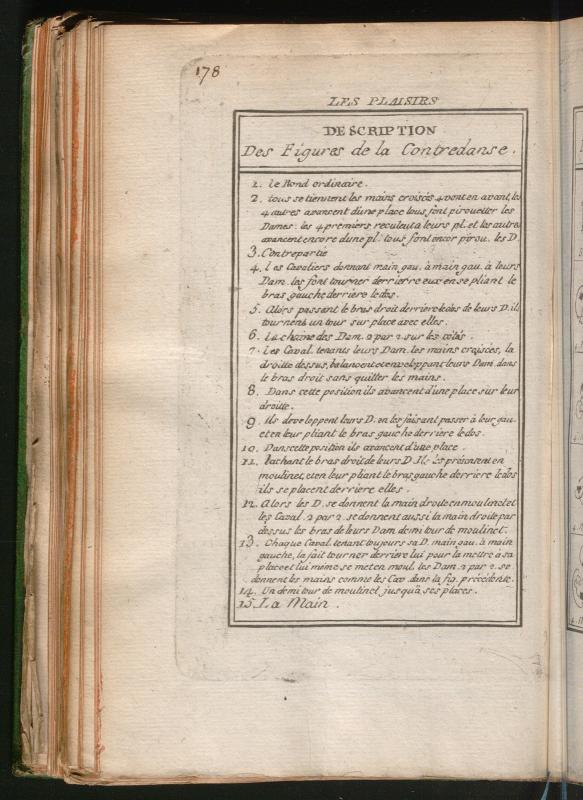 178
LES PLAISIRS
DESCRIPTION
Des Figures de la Contredanse.
1. le Rond ordinaire.
2. tous se tiennent les mains croisées 4 vont en avant, les
4 autres avancent d'une place tous font pirouetter les
Dames: les 4 premiers reculent a leurs pl. et les autres
avancent encore d'une pl. tous font encor pirou. les D.
3. Contrepartie
4. les Cavaliers donnant main gau. à main gau. à leurs
Dam. les font tourner derrierre eux en se pliant le
bras gauche derrière le dos.
5. Alors passant le bras droit derriere le dos de leurs D. il
tournent un tour sur place avec elles.
6. La chaine des Dam. 2 par 2 sur les côtés.
7. les Caval. tenants leurs Dam. les mains craisées, la
droitte dessus, balancent et enveloppant leurs Dam. dans
le bras droit sans quitter les mains.
8. Dans cette position ils avancent d'une place sur leur
droitte.
9. Ils developpent leurs D. en les faisant passer à leur gau.
et en leur pliant le bras gauche derriere le dos.
10. Dans cette position ils avancent d'une place.
11. lachant le bras droit de leurs D. Ils les présentent en
moulinet, et en leur pliant le bras gauche derrière le dos
ils se placent derrière elles.
12. Alors les D. se donnent la main droite en moulinet et
les Caval. 2 par 2. se donnent aussi la main droite par
dessus les bras de leurs Dam. demi tour de moulinet.
13. Chaque Caval. tenant toujours sa D. main gau. à main
gauche, la fait tourner derrière lui pour la mettre à sa
place et lui même se met en moul. les Dam. 2 par 2. se
donnent les mains comme les Cav. dans la fig. précédente.
14. Un demi tour de moulinet jusqu'à ses places.
15. La Main.